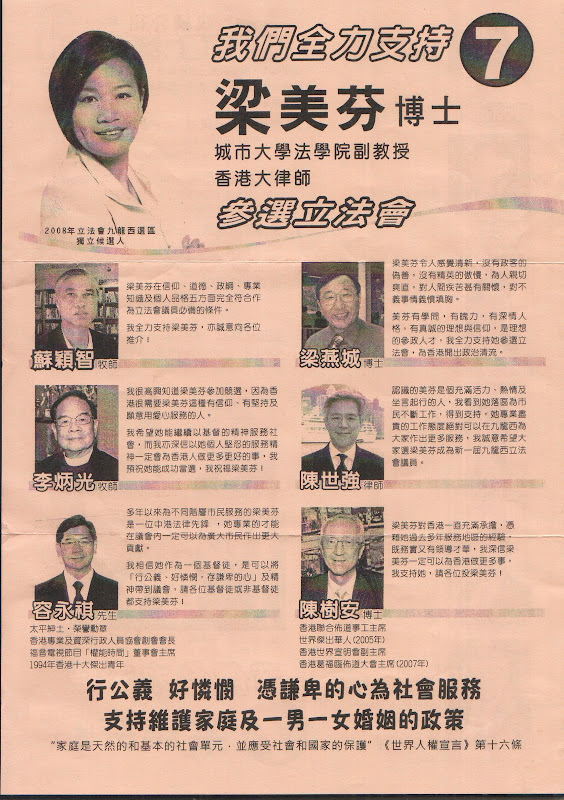 我們全力支持
7
梁美芬 博士
城市大學法學院副教授
香港大律師
參選立法會
2008年立法會九龍西選區
獨立候選人
梁美芬在信仰、道德、政綱、專業
知識及個人品格五方面完全符合作
為立法會議員必備的條件。
我全力支持梁美芬，亦誠意向各位
推介！
蘇穎智 牧師
梁美芬令人感覺清新，沒有政客的
偽善，沒有精英的傲慢，為人親切
爽直，對人間疾苦甚有關懷，對不
義事情義憤填胸。
美芬有學問，有膽力，有深情人
格，有真誠的理想與信仰，是理想
的參政人才。我全力支持她參選立
法會，為香港開出政治清流。
梁燕城 博士
我很高興知道梁美芬參加競選，因為香
港很需要梁美芬這種有信仰、有堅持及
願意用愛心服務的人。
我希望她能繼續以基督的精神服務社
會，而我亦深信以她個人堅忍的服務精
神一定會為香港人做更多更好的事，我
預祝她能成功當選，我祝福梁美芬！
李炳光 牧師
認識的美芬是個充滿活力、熱情及
坐言起行的人，我看到她落區為市
民不斷工作，得到支持。她專業盡
責的工作態度絕對可以在九龍西為
大家作出更多服務，我誠意希望大
家選梁美芬成為新一屆九龍西立法
會議員。
陳世強 律師
多年以來為不同階層市民服務的梁美芬
是一位中港法律先鋒，她專業的才能
在議會內一定可以為廣大市民作出更大
貢獻。
我相信她作為一個基督徒，是可以將
「行公義、好憐憫，存謙卑的心」及精
神帶到議會，請各位基督徒或非基督徒
都支持梁美芬！
容永祺 先生
太平紳士，榮譽勳章
香港專業及資深行政人員協會創會會長
福音電視節目「權能時間」董事會主席
1994年香港十大傑出青年
梁美芬對香港一直充滿承擔，憑
藉她過去多年服務地區的經驗，
既務實又有領導才華，我深信梁
美芬一定可以為香港做更多事，
我支持她，請各位投梁美芬！
陳樹安 博士
香港聯合佈道事工主席
世界傑出華人(2005年)
香港世界宣明會副主席
香港葛福臨佈道大會主席(2007年)
行公義 好憐憫 憑謙卑的心為社會服務
支持維護家庭及一男一女婚姻的政策
“家庭是天然的和基本的社會單元，並應受社會和國家的保護”《世界人權宣言》第十六條